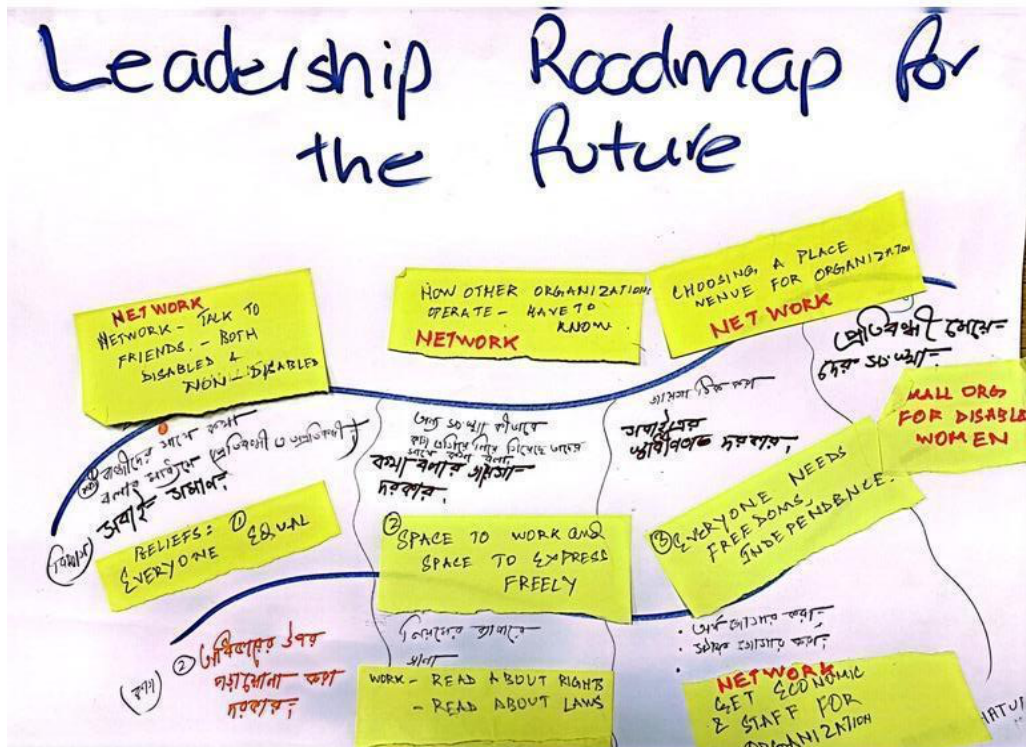 Leadership Roadmap for
the future
NETWORK
NETWORK - TALK TO
FRIENDS. - BOTH
DISABLED &
NON-DISABLED
HOW OTHER ORGANIZATIONS
OPERATE - HAVE TO
KNOW.
NETWORK
CHOOSING A PLACE
VENUE FOR ORGANIZATION
NETWORK
প্রতিবন্ধী মেয়ে-
দের সংস্থা-
বন্ধুদের সাথে কথা
বলার মাধ্যমে প্রতিবন্ধী ও অপ্রতিবন্ধী
সবাই সমান।
অন্য সংস্থা কীভাবে
কথা বলার জায়গা
দরকার।
জায়গা ঠিক করা
সবাইয়ের
স্বাধীনতা দরকার।
MALL ORG
FOR DISABLE
WOMEN
BELIEFS: ① EQUAL
EVERYONE
② SPACE TO WORK and
SPACE TO EXPRESS
FREELY
③ EVERYONE NEEDS
FREEDOMS,
INDEPENDENCE.
② অধিকারের উপর
পড়াশোনা করা
দরকার।
WORK - READ ABOUT RIGHTS
- READ ABOUT LAWS
NETWORK
GET ECONOMIC
& STAFF FOR
ORGANIZATION